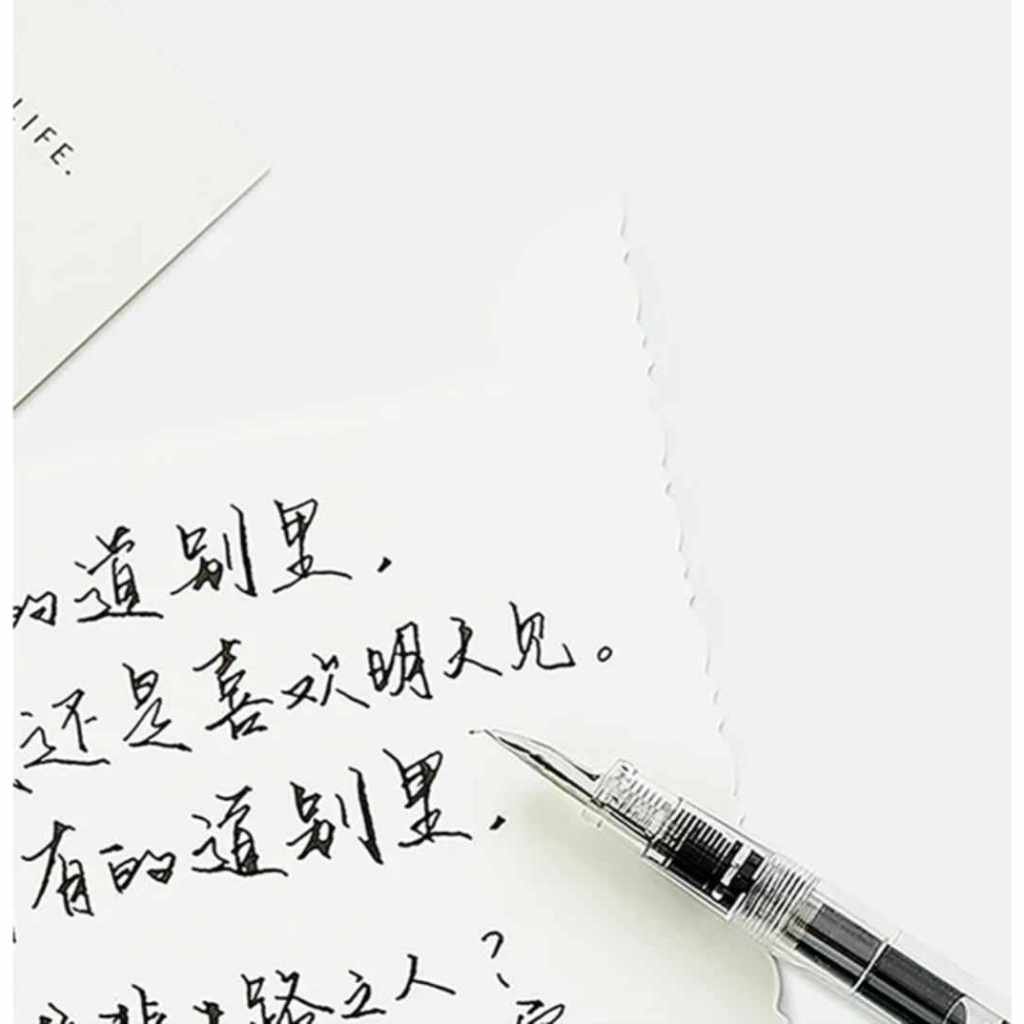 LIFE.
的道别里,
还是喜欢明天见。
有的道别里,
路之人?